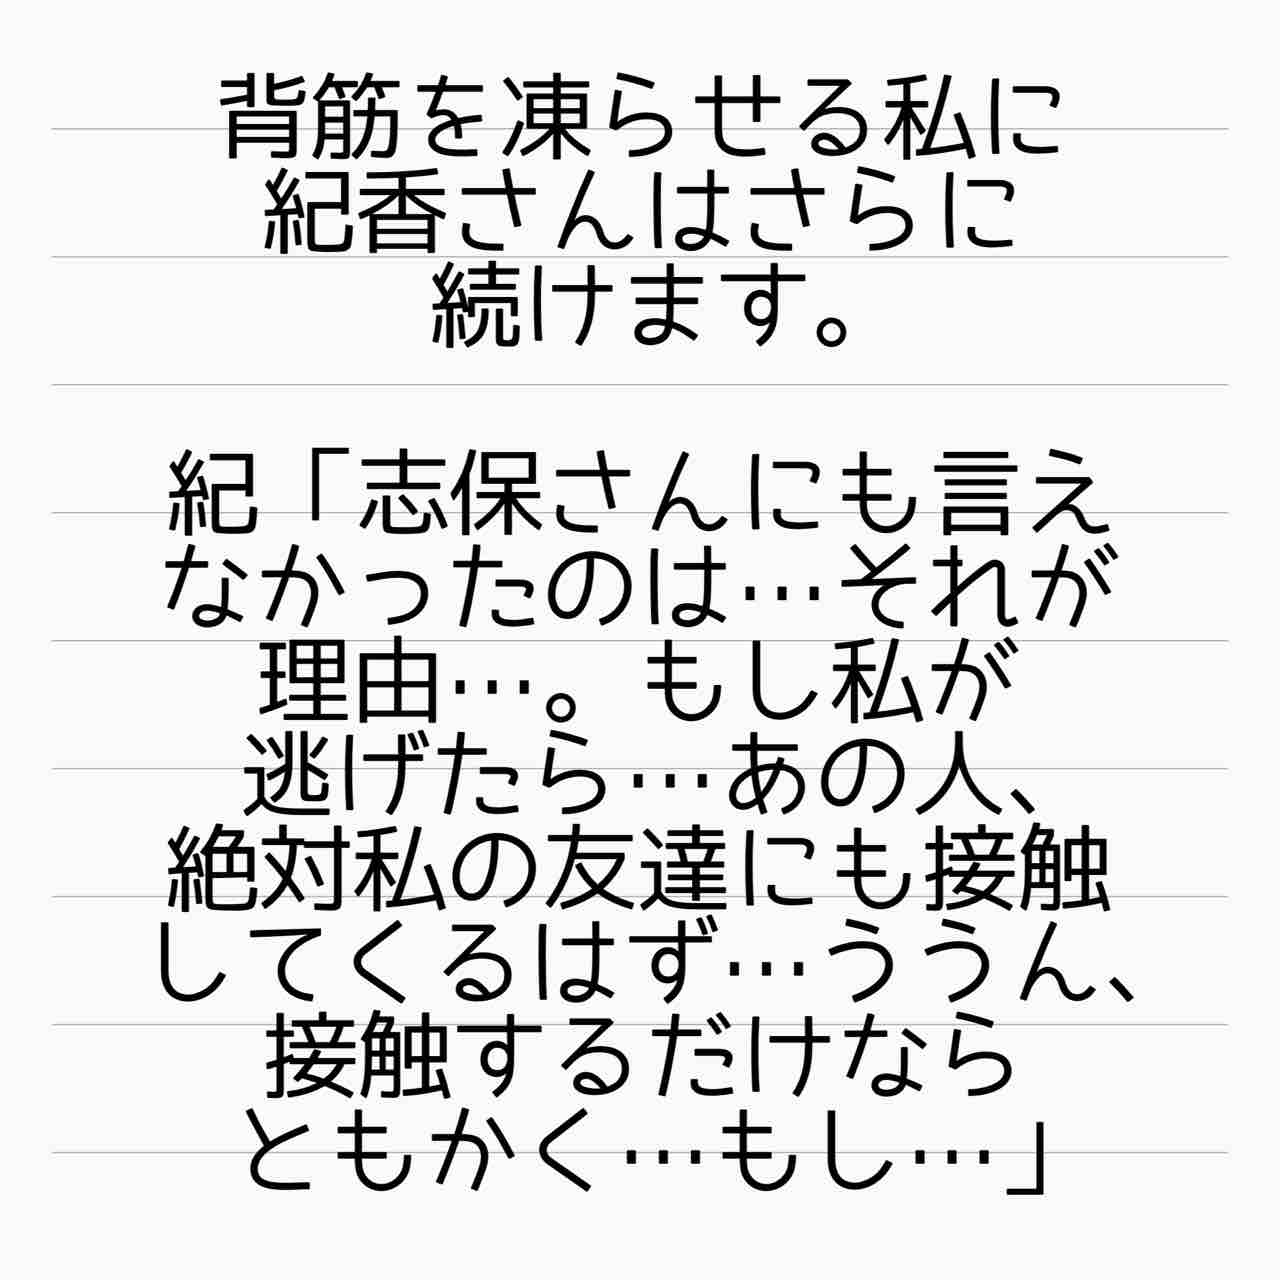 背筋を凍らせる私に
紀香さんはさらに
続けます。
紀「志保さんにも言え
なかったのは…それが
理由…。もし私が
逃げたら…あの人、
絶対私の友達にも接触
してくるはず…ううん、
接触するだけなら
ともかく…もし…」